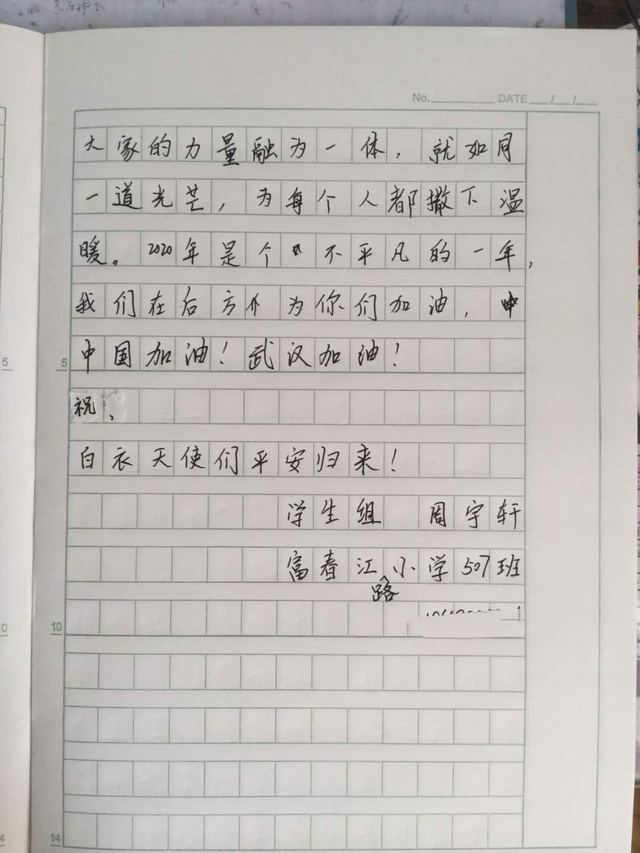 No. DATE / /
大家的力量融为一体，就如同
一道光芒，为每个人都撒下温
暖。2020年是个不平凡的一年，
我们在后方为你们加油，中
中国加油！武汉加油！
5 5
祝，
白衣天使们平安归来！
学生组 周宇轩
富春江路小学507班
0 10
4 14